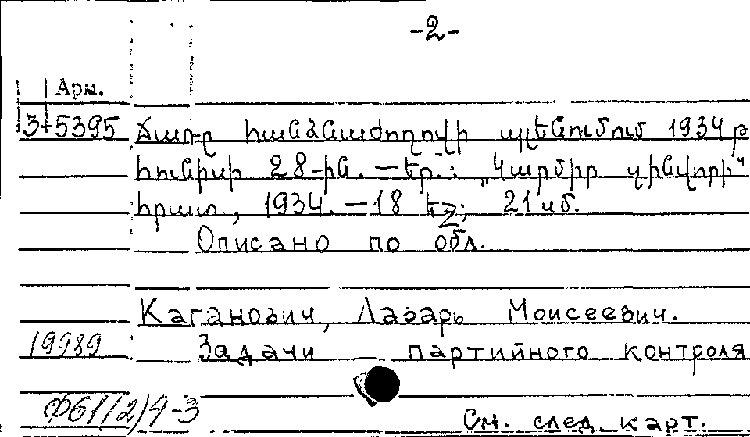 -2-
Арм.
3+5395 Ճառը հանձնաժողովի պլենումում 1934թ
հունիսի 28-ին. — Եր.: „Կարմիր զինվորի"
հրատ, 1934. — 18 եջ; 21սմ.
Описано по обл.
Каганович, Лазарь Моисеевич.
19989 Задачи партийного контроля
Ф61/(2)4-3 См. след. карт.